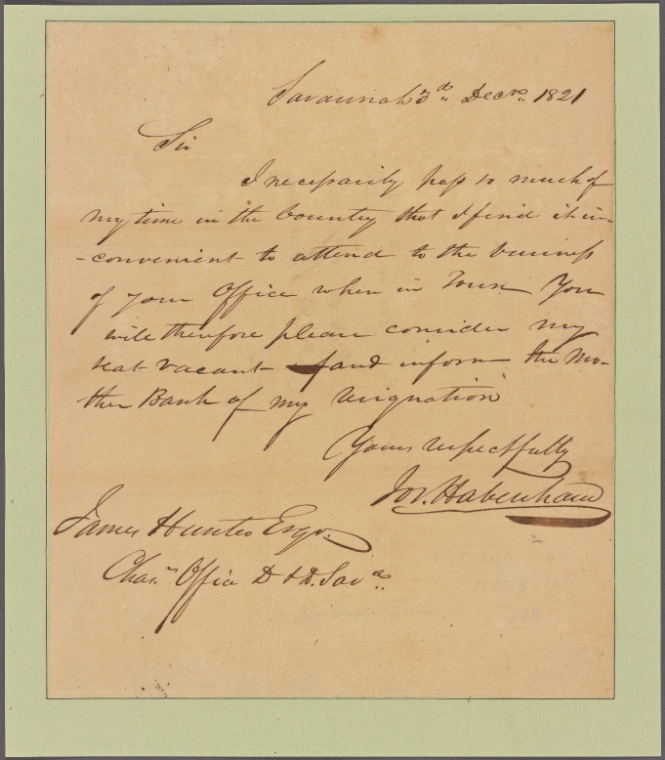 Savannah 3d. Decr. 1821
Sir
I necessarily pass so much of
my time in the Country that I find it in-
-convenient to attend to the business
of your Office when in Town You
will therefore please consider my
seat vacant and inform the Mo-
ther Bank of my resignation
Yours respectfully
Jos. Habersham
James Hunter Esqr.
Chan. Office D & D. Sava.